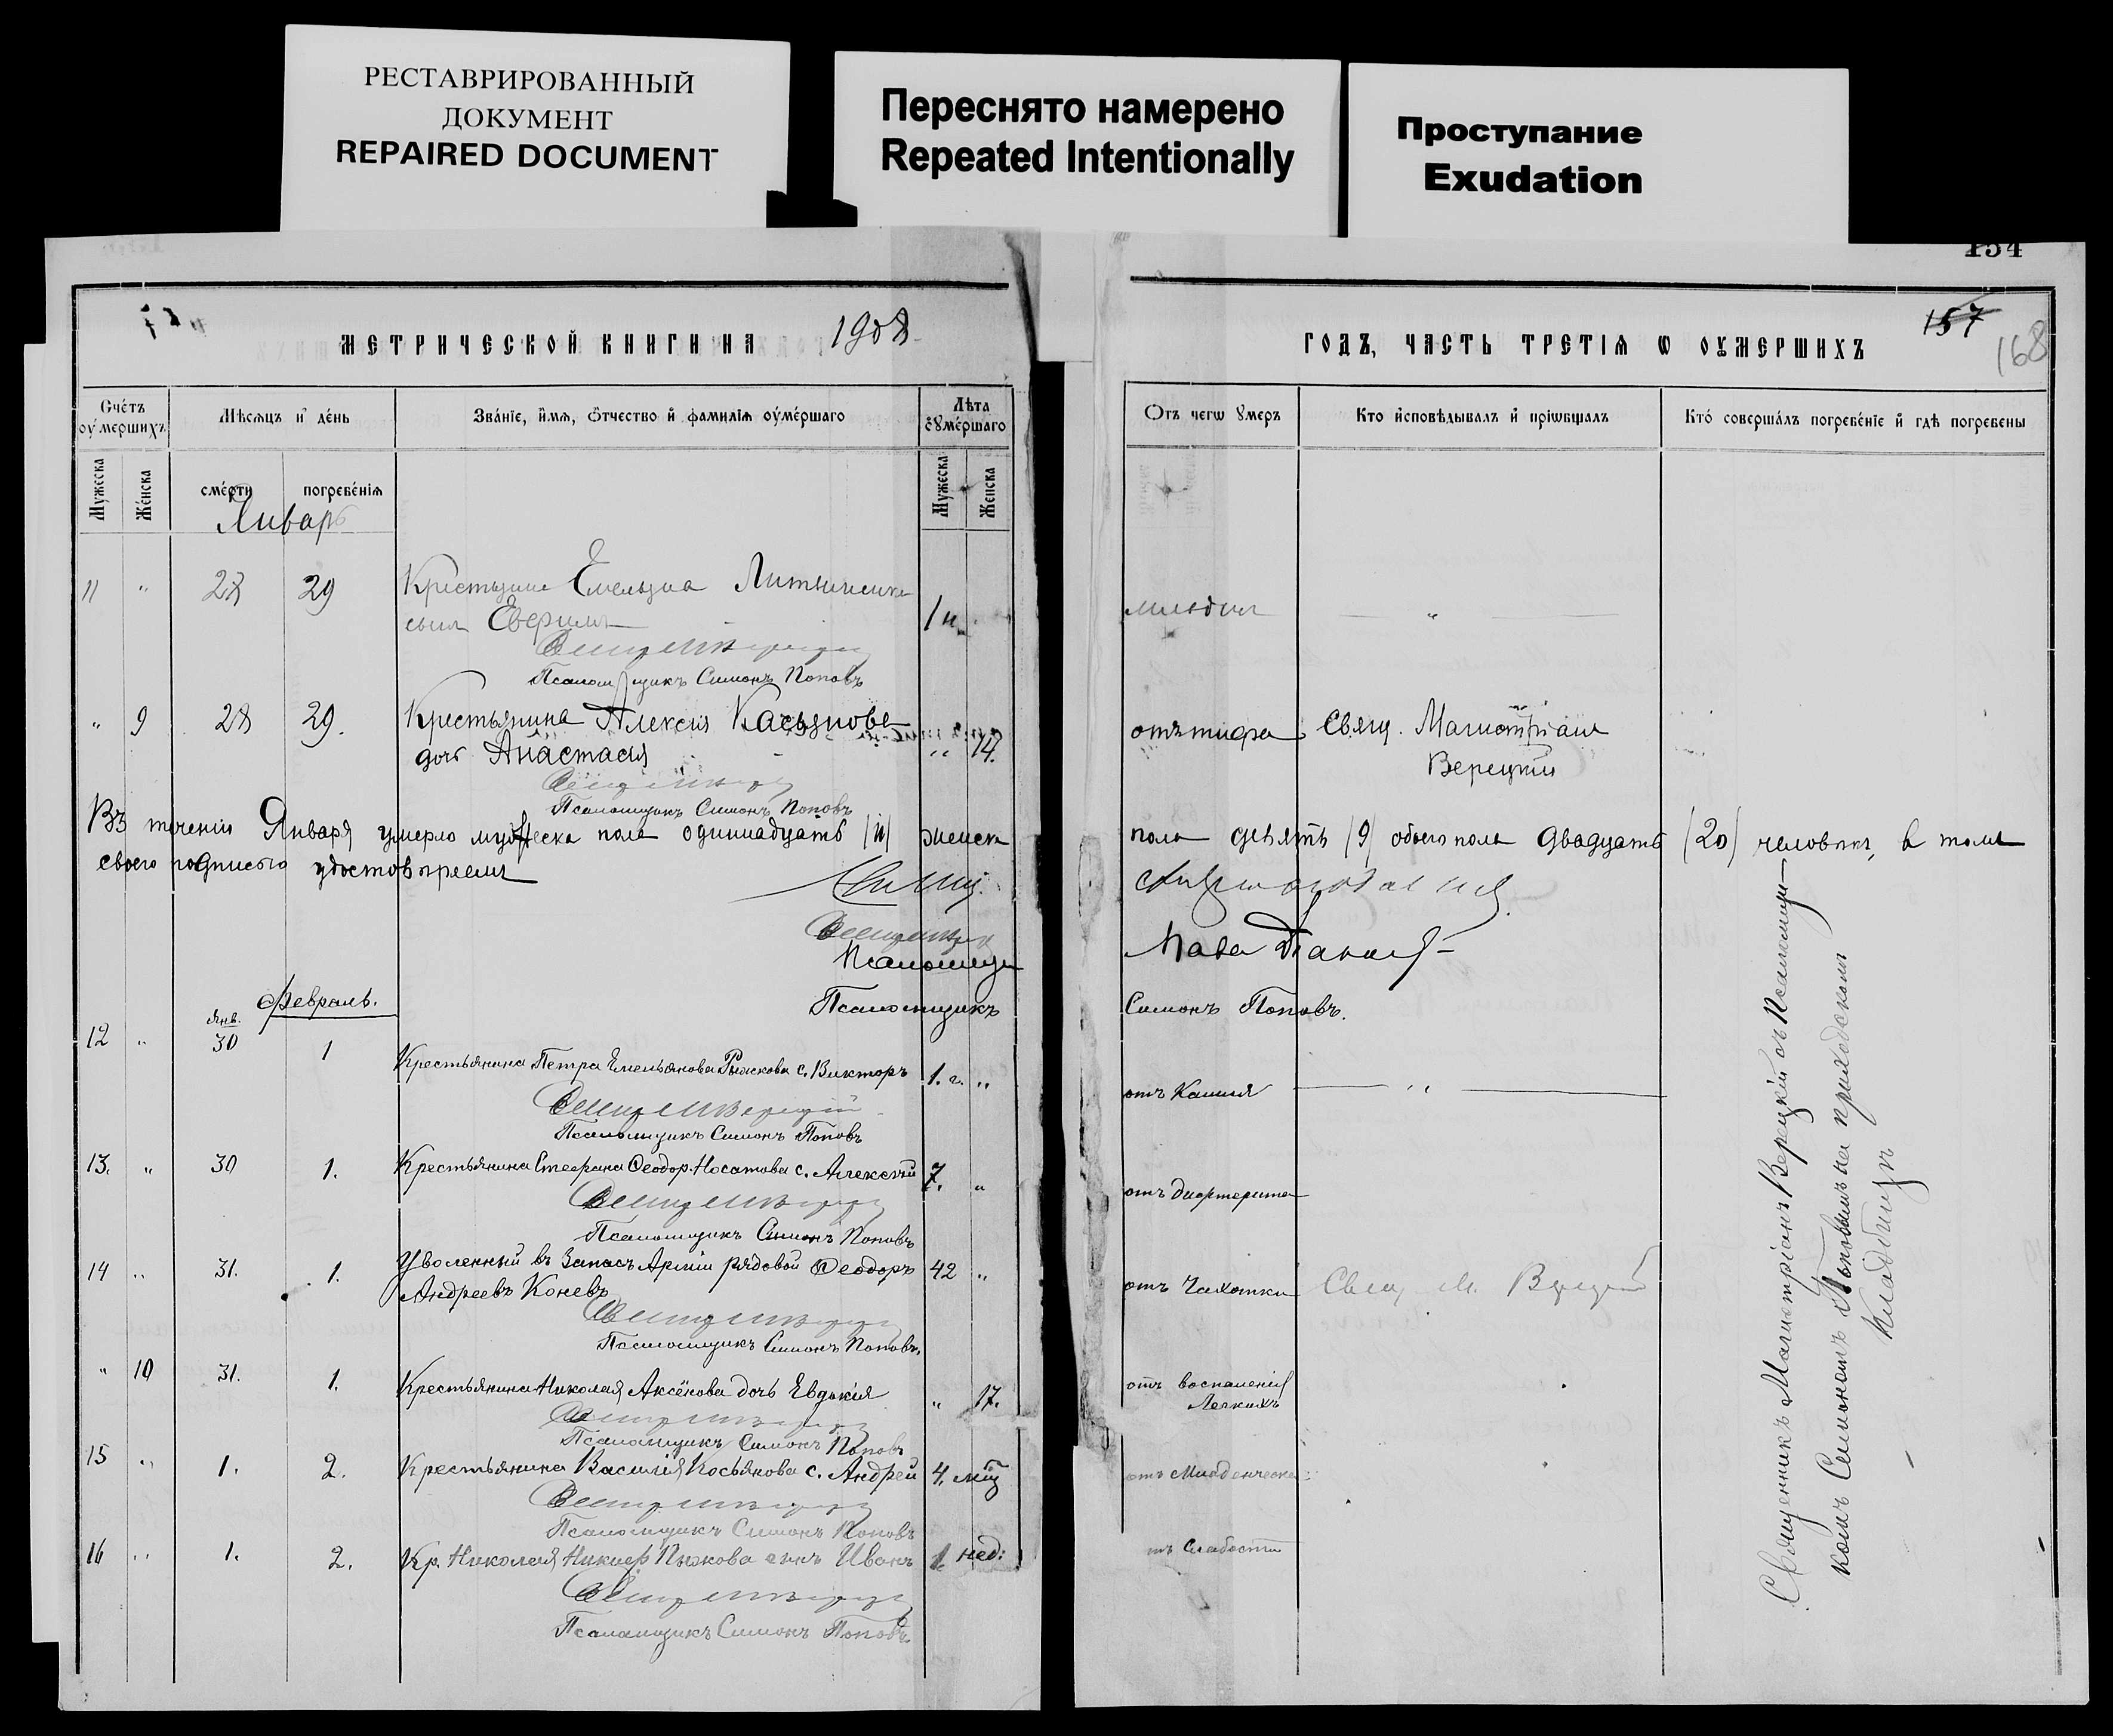 РЕСТАВРИРОВАННЫЙ
ДОКУМЕНТ
REPAIRED DOCUMENT
Переснято намерено
Repeated Intentionally
Проступание
Exudation
154
157
168
МЕТРИЧЕСКОЙ КНИГИ НА 1908
ГОДЪ, ЧАСТЬ ТРЕТІЯ Ѡ ОУМЕРШИХЪ
Счётъ оумершихъ
Мѣсяцъ и день
Званіе, имя, ѻтчество и фамилія оумершаго
Лѣта оумершаго
Отъ чегѡ умеръ
Кто исповѣдывалъ и пріѡбщалъ
Кто совершалъ погребеніе и гдѣ погребены
Мужеска
Женска
смерти
погребенія
Мужеска
Женска
Январь
11 " 28 29 Емельяна
сынъ 1 н.
Псаломщикъ Симонъ Поповъ
" 9 28 29. Крестьянина Алексія Касьянова " 14. отъ тифа Свящ. Магистріанъ
дочь Анастасія Верецкій
Псаломщикъ Симонъ Поповъ
Въ теченіи Января умерло мужеска пола одиннадцать (11) женска пола девять (9) обоего пола двадцать (20) человѣкъ, в томъ
своею подписью удостовѣряемъ
Псаломщикъ Симонъ Поповъ.
Февраль.
12 " Янв. 30 1 Крестьянина Петра Емельянова Рыжкова с. Викторъ 1. г. " отъ Кашля "
Псаломщикъ Симонъ Поповъ
13. " 30 1. Крестьянина Стефана Ѳеодор. Носатова с. Алексѣй 7. " отъ дифтерита
Псаломщикъ Симонъ Поповъ
14 " 31. 1. Уволенный въ Запасъ Арміи рядовой Ѳеодоръ 42 " отъ Чахотки Свящ. М. Верецкій
Андреевъ Коневъ
Псаломщикъ Симонъ Поповъ.
" 10 31. 1. Крестьянина Николая Аксёнова дочь Евдокія " 17. отъ воспаленія
Легкихъ
Псаломщикъ Симонъ Поповъ
15 " 1. 2. Крестьянина Василія Косьянова с. Андрей 4. мѣц отъ Младенческ.
Псаломщикъ Симонъ Поповъ
16 " 1. 2. Кр. Николая Никиф. Пыжкова сынъ Иванъ 1. нед: Слабости
Псаломщикъ Симонъ Поповъ.
Священникъ Магистріанъ Верецкій съ Псаломщи-
комъ Симономъ Поповымъ на приходскомъ
кладбищѣ